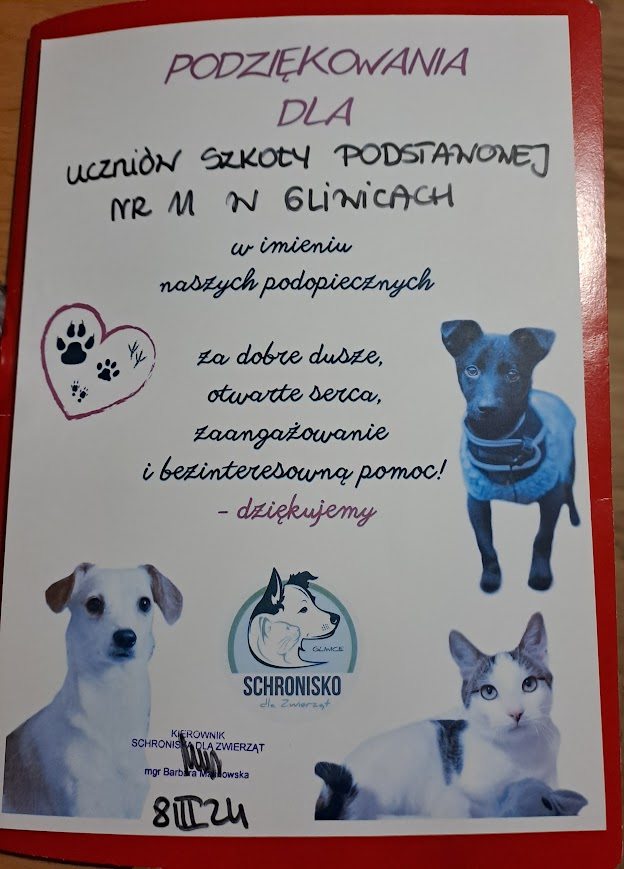 PODZIĘKOWANIA
DLA
UCZNIÓW SZKOŁY PODSTAWOWEJ
NR 11 W GLIWICACH
w imieniu
naszych podopiecznych
za dobre dusze,
otwarte serca,
zaangażowanie
i bezinteresowną pomoc!
- dziękujemy
GLIWICE
SCHRONISKO
dla Zwierząt
KIEROWNIK
SCHRONISKA DLA ZWIERZĄT
mgr Barbara
8 III 24